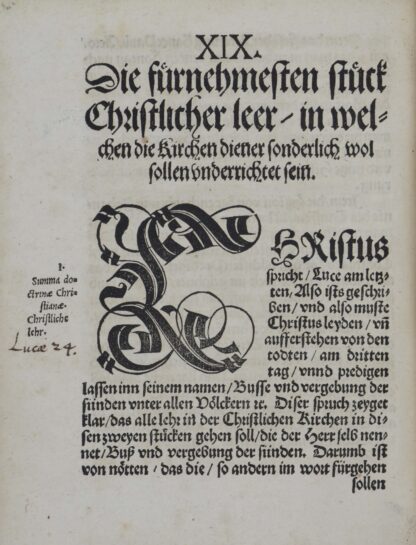 XIX.
Die fürnehmesten stück
Christlicher leer / in wel-
chen die Kirchen diener sonderlich wol
sollen vnderrichtet sein.
I.
Summa do-
ctrinæ Chri-
stianæ.
Christliche
lehr.
Lucæ 24.
CHRistus
spricht / Luce am letz-
ten, Also ists geschri-
ben / vnd also muste
Christus leyden / vñ
aufferstehen von den
todten / am dritten
tag / vnnd predigen
lassen inn seinem namen / Busse vnd vergebung der
sünden vnter allen Völckern ꝛc. Diser spruch zeyget
klar / das alle lehr in der Christlichen Kirchen in di-
sen zweyen stücken gehen soll / die der Herr selbs nen-
net / Buß vnd vergebung der sünden. Darumb ist
von nötten / das die / so andern im wort fürgehen
sollen